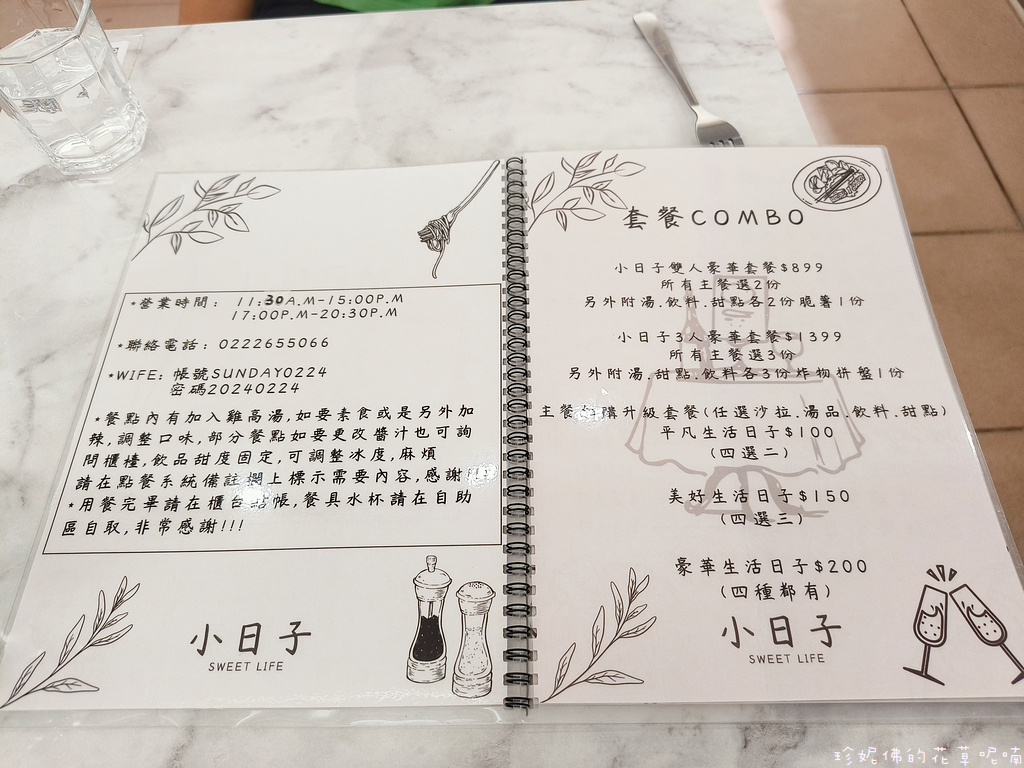 *營業時間： 11:30A.M-15:00P.M
17:00P.M-20:30P.M
*聯絡電話：0222655066
*WIFE：帳號SUNDAY0224
密碼20240224
*餐點內有加入雞高湯,如要素食或是另外加
辣,調整口味,部分餐點如要更改醬汁也可詢
問櫃檯,飲品甜度固定,可調整冰度,麻煩
請在點餐系統備註欄上標示需要內容,感謝!!!
*用餐完畢請在櫃台結帳,餐具水杯請在自助
區自取,非常感謝!!!
小日子
SWEET LIFE
套餐COMBO
小日子雙人豪華套餐$899
所有主餐選2份
另外附湯.飲料.甜點各2份脆薯1份
小日子3人豪華套餐$1399
所有主餐選3份
另外附湯.甜點.飲料各3份炸物拼盤1份
主餐購升級套餐(任選沙拉.湯品.飲料.甜點)
平凡生活日子$100
(四選二)
美好生活日子$150
(四選三)
豪華生活日子$200
(四種都有)
小日子
SWEET LIFE
珍妮佛的花草呢喃